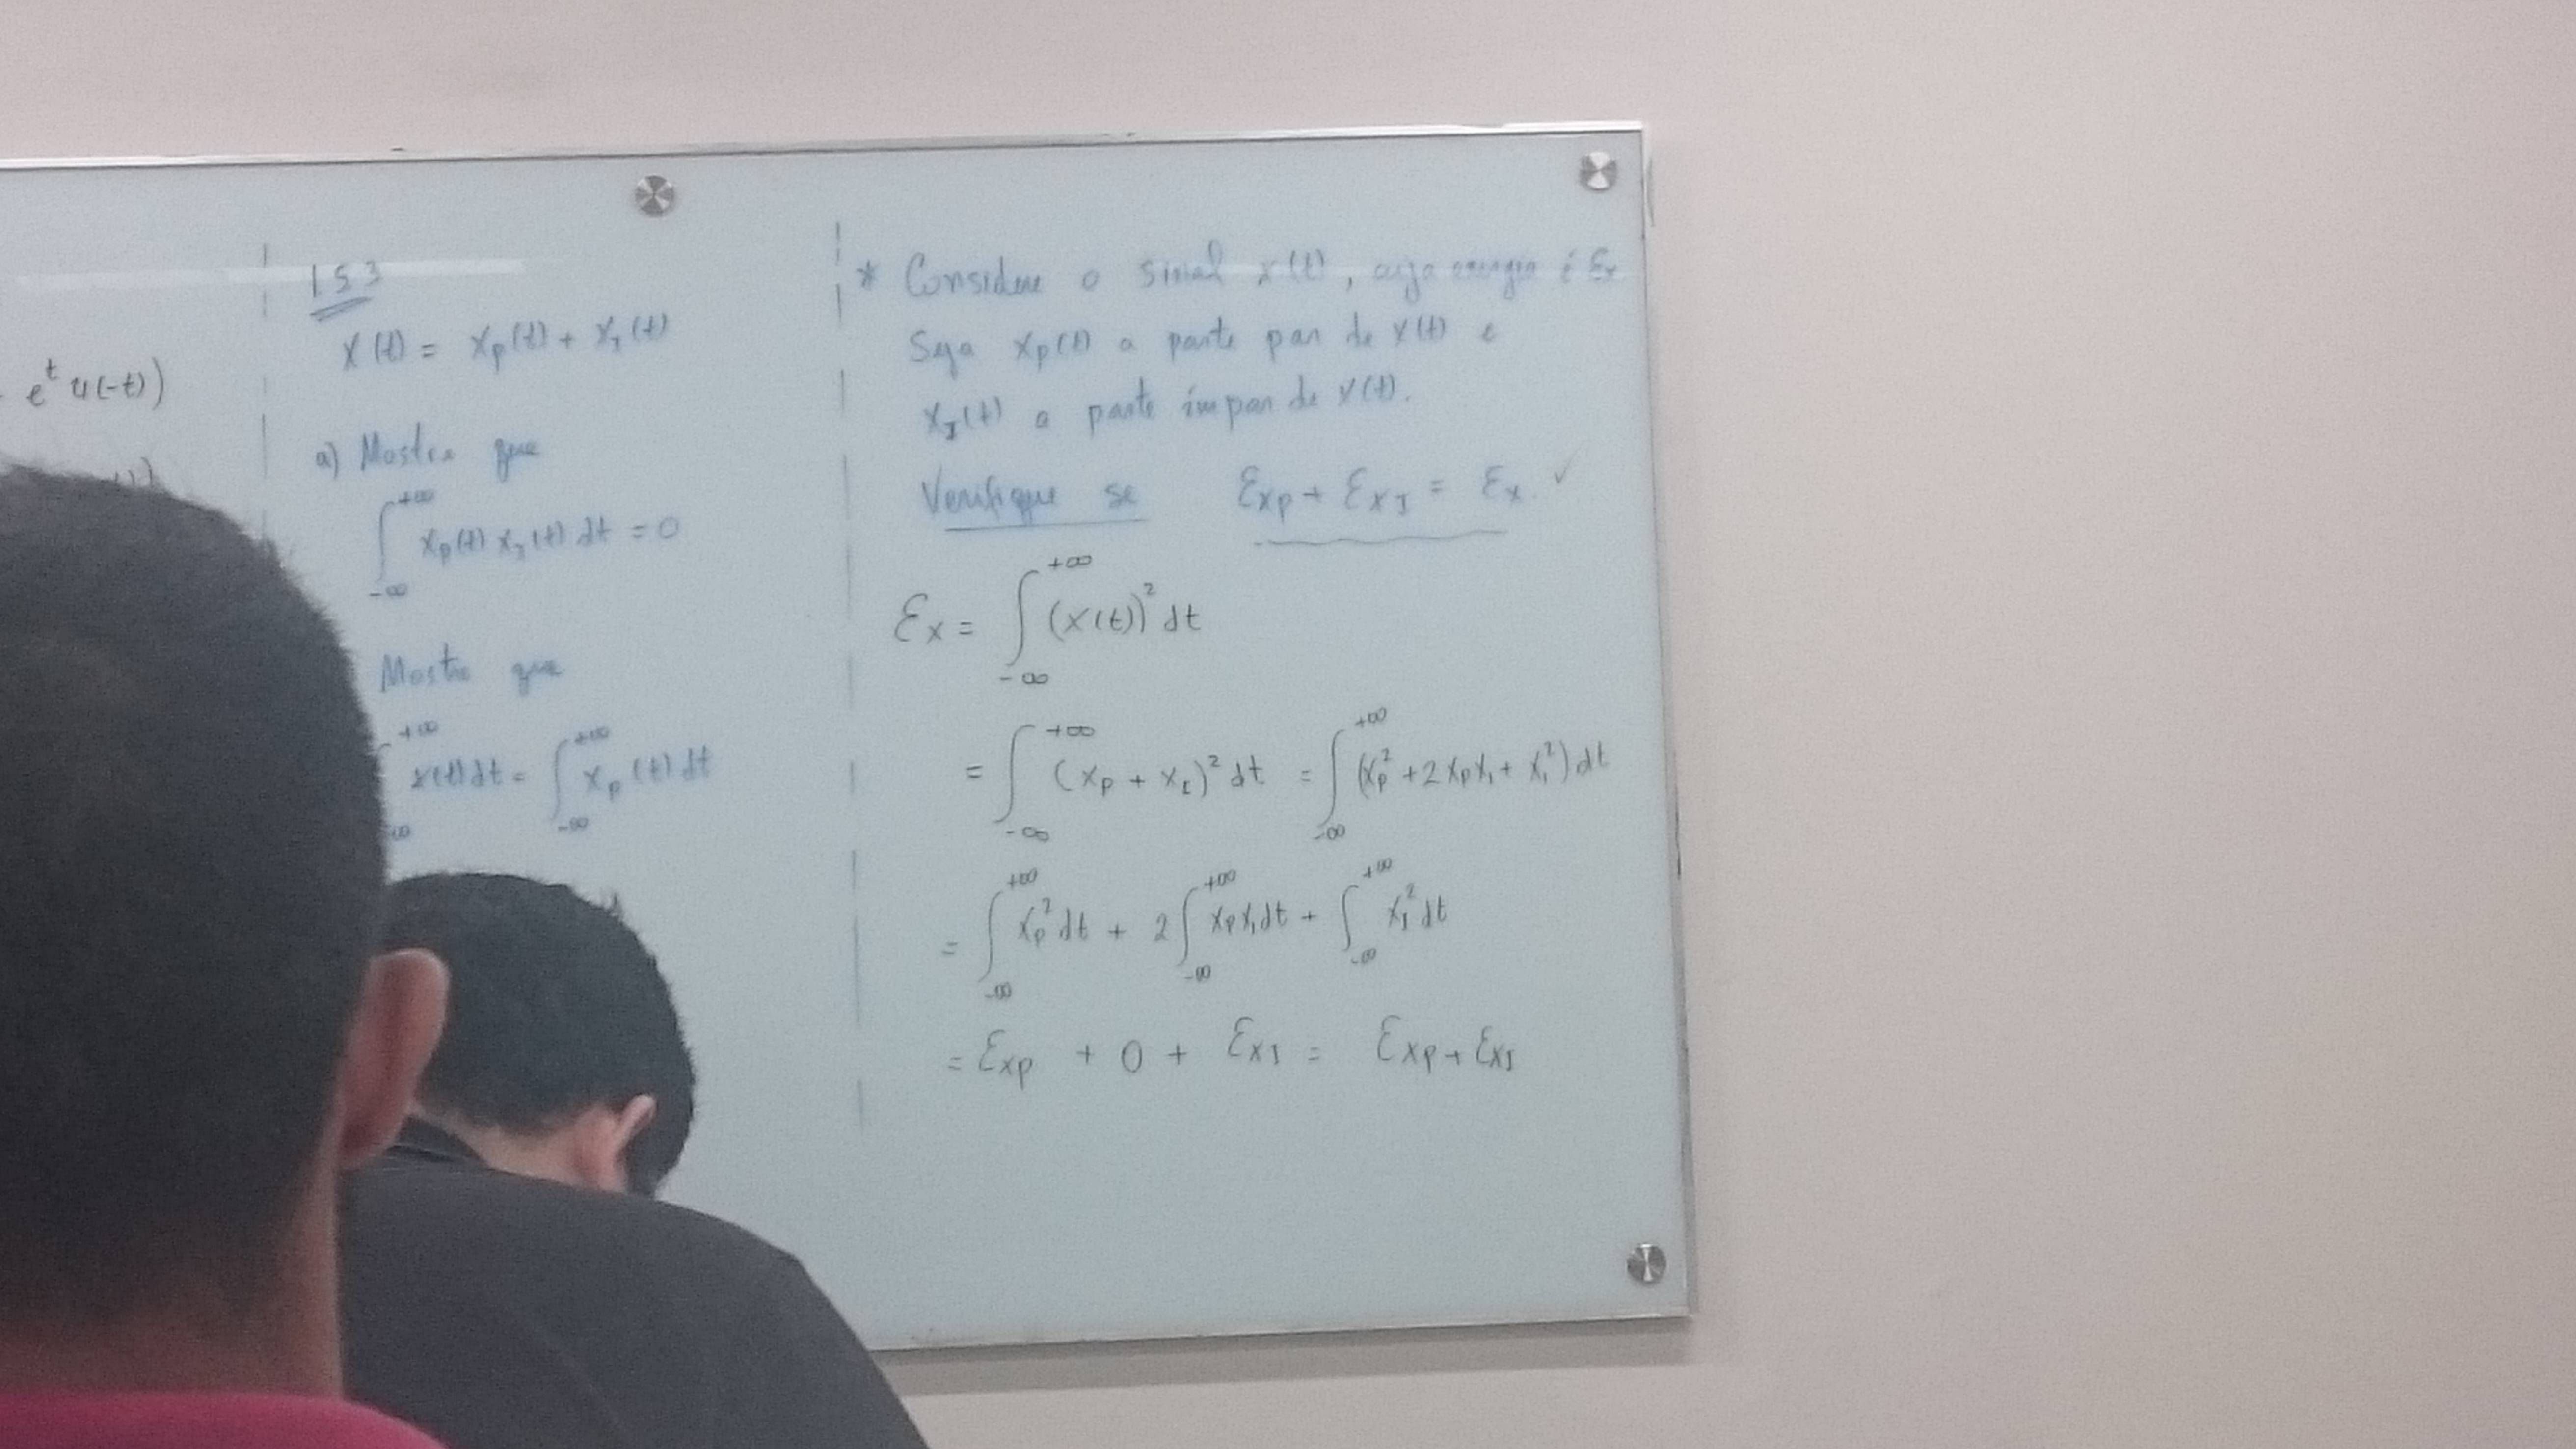 e^t u(-t))
1.5 3
x(t) = x_p(t) + x_I(t)
a) Mostre que
∫_{-∞}^{+∞} x_p(t) x_I(t) dt = 0
Mostre que
∫_{-∞}^{+∞} x(t) dt = ∫_{-∞}^{+∞} x_p(t) dt
* Considere o sinal x(t), cuja energia é Ex
Seja x_p(t) a parte par de x(t) e
x_I(t) a parte ímpar de x(t).
Verifique se Ɛxp + ƐxI = Ɛx. ✓
Ɛx = ∫_{-∞}^{+∞} (x(t))² dt
= ∫_{-∞}^{+∞} (x_p + x_I)² dt = ∫_{-∞}^{+∞} (x_p² + 2x_p x_I + x_I²) dt
= ∫_{-∞}^{+∞} x_p² dt + 2∫_{-∞}^{+∞} x_p x_I dt + ∫_{-∞}^{+∞} x_I² dt
= Ɛxp + 0 + ƐxI = Ɛxp + ƐxI